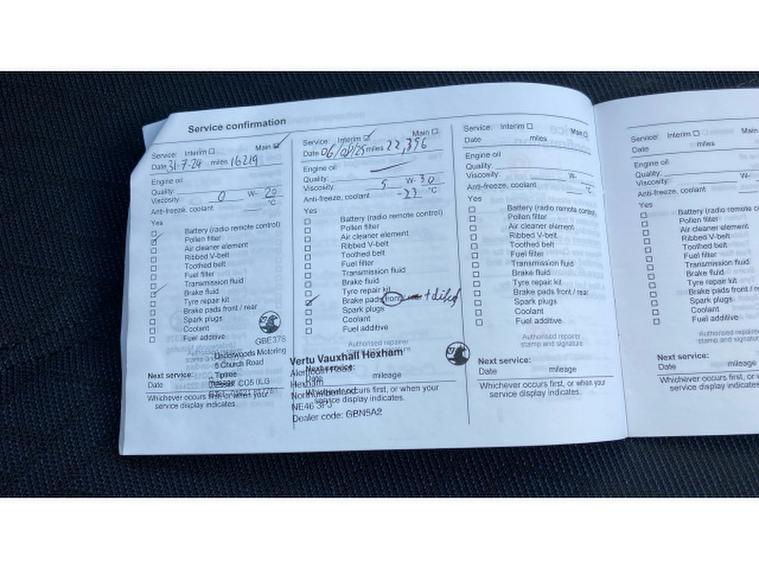 Service confirmation
Service: Interim Main
Date 31-7-24 miles 16219
Engine oil
Quality:
Viscosity: 0 W- 20
Anti-freeze, coolant °C
Yes
Battery (radio remote control)
Pollen filter
Air cleaner element
Ribbed V-belt
Toothed belt
Fuel filter
Transmission fluid
Brake fluid
Tyre repair kit
Brake pads front / rear
Spark plugs
Coolant
Fuel additive
GBE378
Underwoods Motoring
6 Church Road
Tiptree
CO5 0LG
Next service:
Date
Whichever occurs first, or when your
service display indicates.
Service: Interim Main
Date 06/08/25 miles 22,396
Engine oil
Quality:
Viscosity: 5 W- 30
Anti-freeze, coolant -23 °C
Yes
Battery (radio remote control)
Pollen filter
Air cleaner element
Ribbed V-belt
Toothed belt
Fuel filter
Transmission fluid
Brake fluid
Tyre repair kit
Brake pads front
Spark plugs
Coolant
Fuel additive
Authorised repairer
stamp and signature
Vertu Vauxhall Hexham
Next service:
Hexham
NE46 3PJ
Dealer code: GBN5A2
mileage
Whichever occurs first, or when your
service display indicates.
Service: Interim Main
Date miles
Engine oil
Quality:
Viscosity: W-
Anti-freeze, coolant °C
Yes
Battery (radio remote control)
Pollen filter
Air cleaner element
Ribbed V-belt
Toothed belt
Fuel filter
Transmission fluid
Brake fluid
Tyre repair kit
Brake pads front / rear
Spark plugs
Coolant
Fuel additive
Authorised repairer
stamp and signature
Next service:
Date mileage
Whichever occurs first, or when your
service display indicates.
Service: Interim Main
Date miles
Engine oil
Quality:
Viscosity:
Anti-freeze, coolant
Yes
Battery (radio remote co
Pollen filter
Air cleaner element
Ribbed V-belt
Toothed belt
Fuel filter
Transmission fluid
Brake fluid
Tyre repair kit
Brake pads front / re
Spark plugs
Coolant
Fuel additive
Authorised repai
stamp and signat
Next service:
Date mileage
Whichever occurs first, or wh
service display indicates.